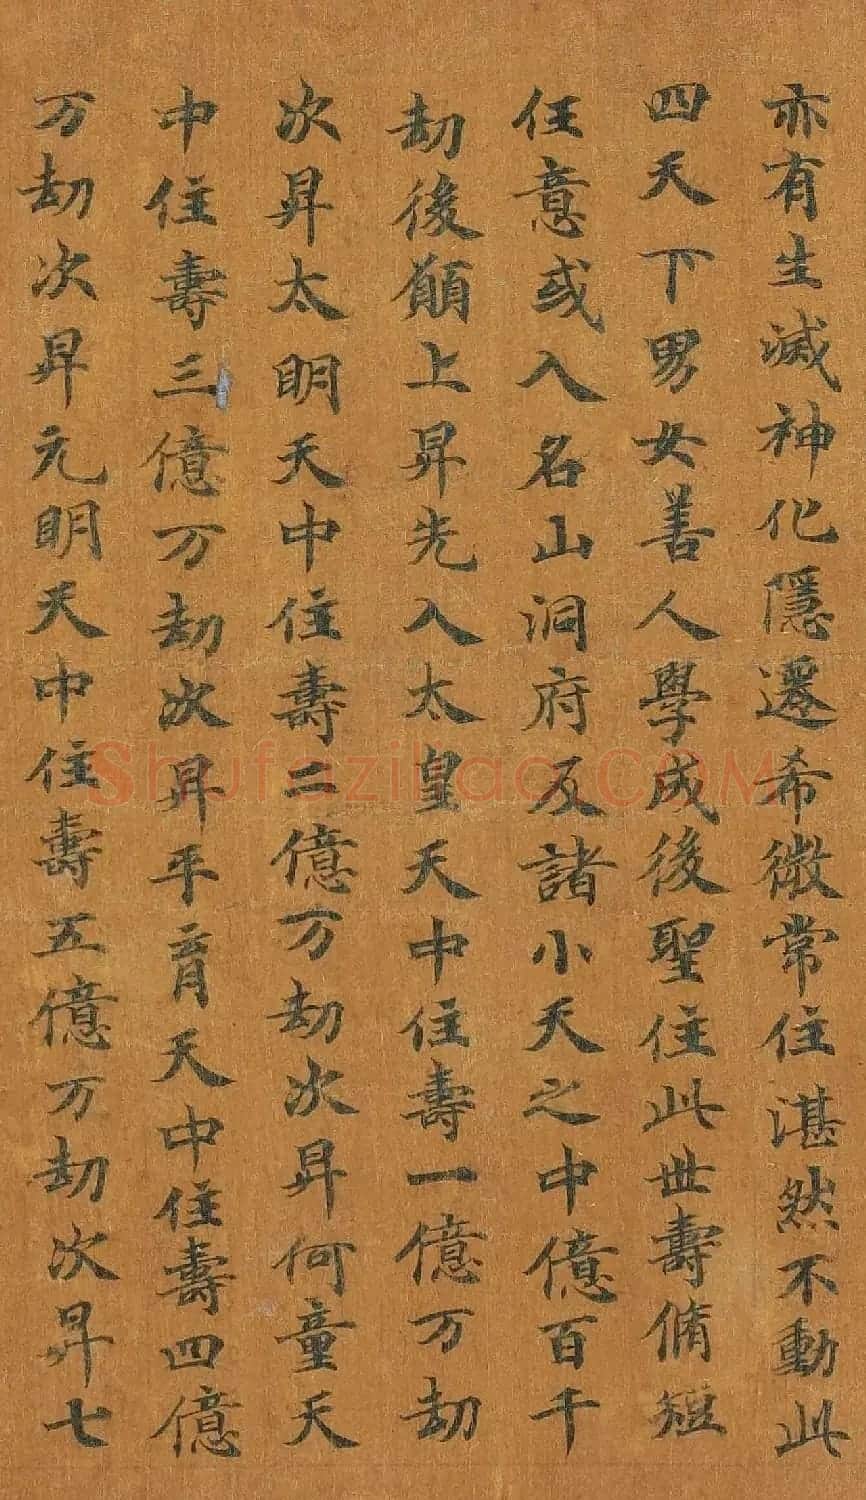 亦有生滅神化隱遷希微常住湛然不動此
四天下男女善人學成後聖住此世壽脩短
任意或入名山洞府及諸小天之中億百千
劫後願上昇先入太皇天中住壽一億万劫
次昇太明天中住壽二億万劫次昇何童天
中住壽三億万劫次昇平育天中住壽四億
万劫次昇元明天中住壽五億万劫次昇七
Shufazihao.COM